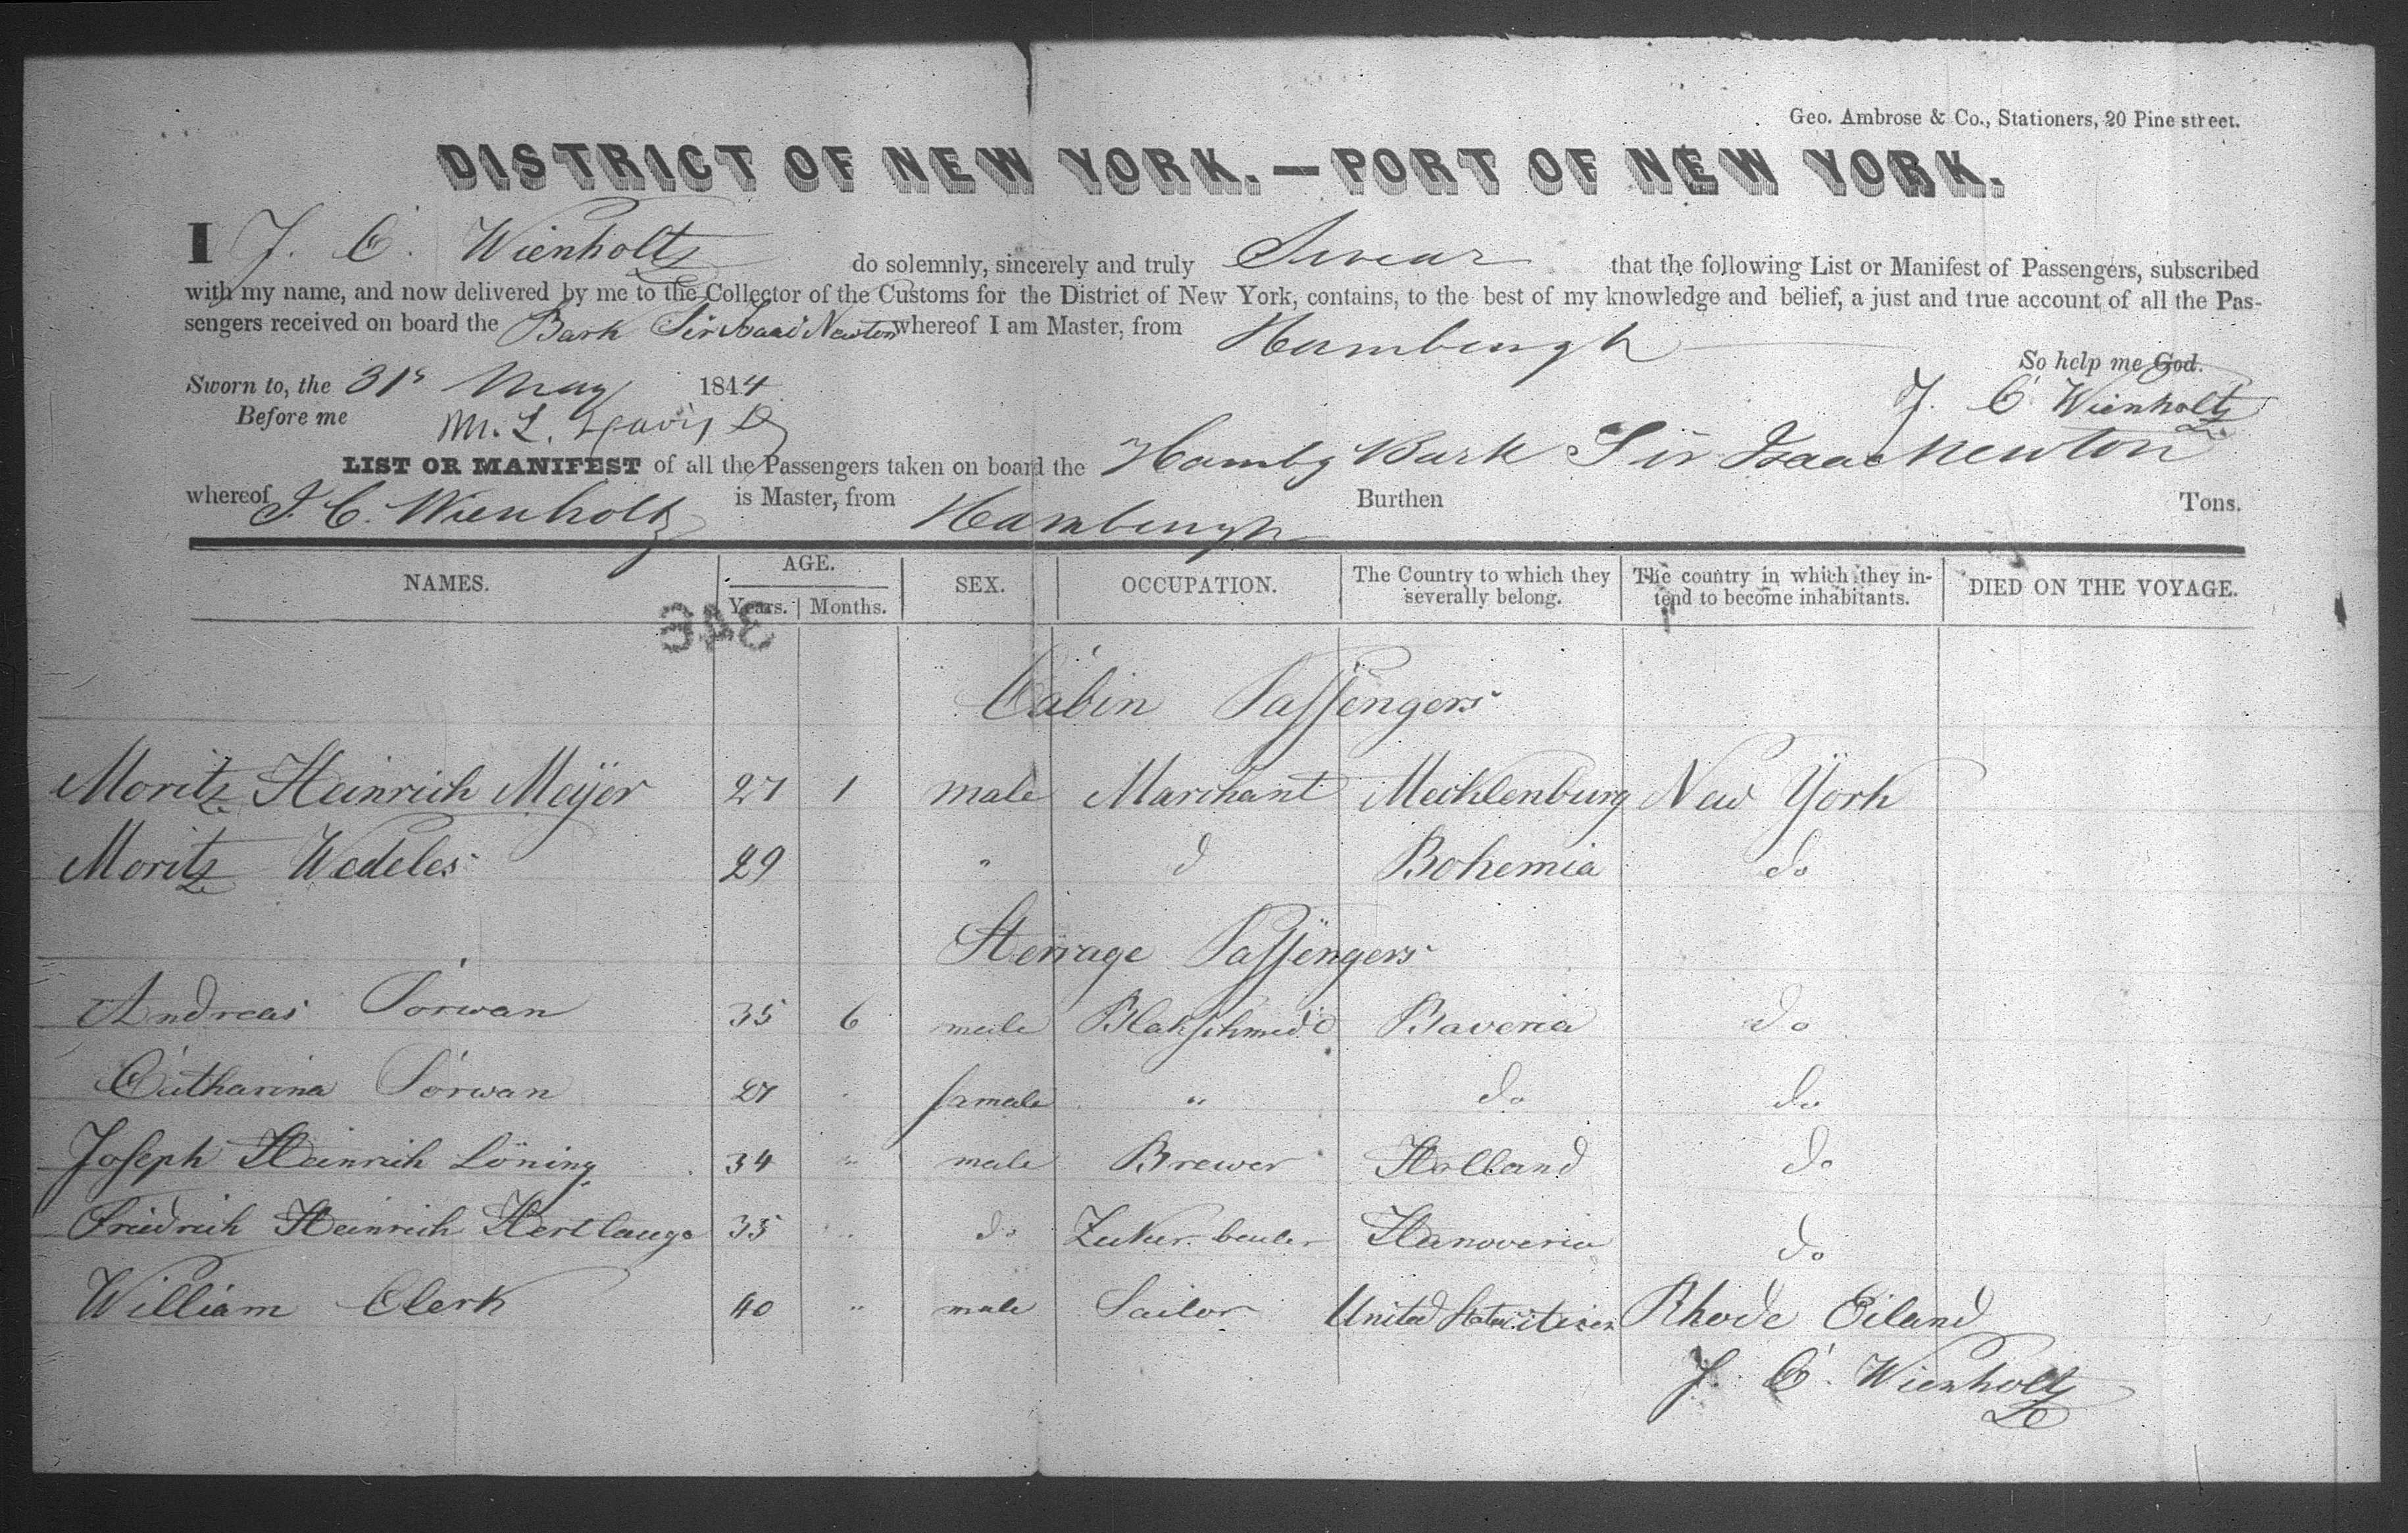 Geo. Ambrose & Co., Stationers, 20 Pine street.
DISTRICT OF NEW YORK.—PORT OF NEW YORK.
I J. C. Wienholtz do solemnly, sincerely and truly Swear that the following List or Manifest of Passengers, subscribed
with my name, and now delivered by me to the Collector of the Customs for the District of New York, contains, to the best of my knowledge and belief, a just and true account of all the Pas-
sengers received on board the Bark Sir Isaac Newton whereof I am Master, from Hamburgh
So help me God.
Sworn to, the 31s May 1844 J. C. Wienholtz
Before me M. L. Davis
LIST OR MANIFEST of all the Passengers taken on board the Hambg Bark Sir Isaac Newton
whereof J. C. Wienholtz is Master, from Hamburgh Burthen Tons.
NAMES. AGE. Years. Months. SEX. OCCUPATION. The Country to which they severally belong. The country in which they in-tend to become inhabitants. DIED ON THE VOYAGE.
346
Cabin Passengers
Moritz Heinrich Meijer 27 1 male Marchant Mechlenburg New York
Moritz Wedeles 29 " d Bohemia do
Sterrage Passengers
Andreas Porwan 35 6 male Blakschmed Baveria do
Catharina Porwan 27 " female " do do
Joseph Heinrich Löning 34 " male Brewer Holland do
Friedrich Heinrich Hertlauge 35 " do Zuker Hanoveria do
William Clerk 40 " male Sailor United States citisen Rhode Eiland
J. C. Wienholtz